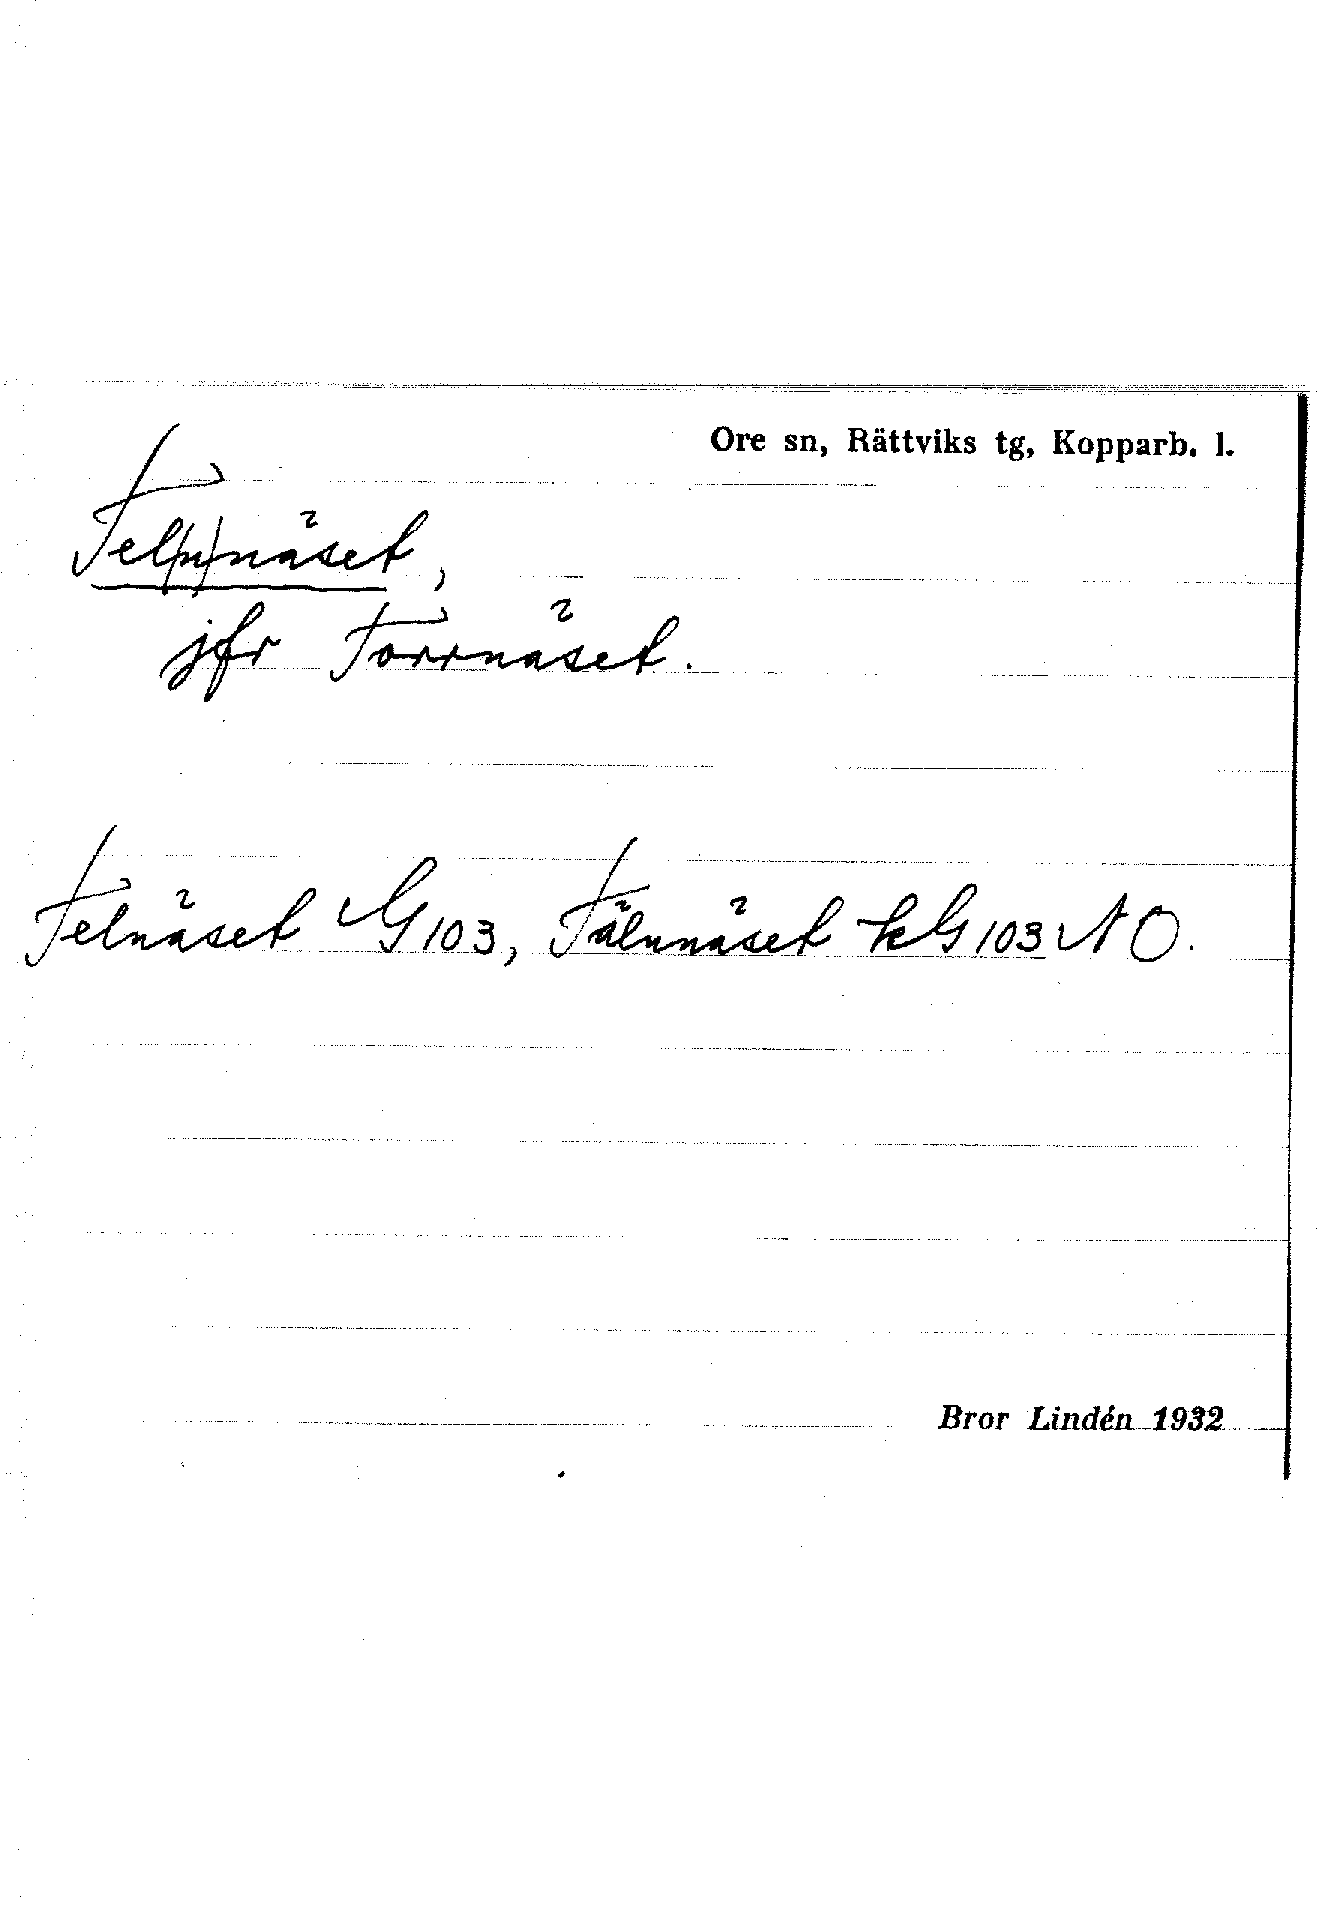 Ore sn, Rättviks tg, Kopparb. l.
Tel(n)näset,
jfr Torrnäset.
Telnäset G 103, Tälnnäset kG 103 NO.
Bror Lindén 1932